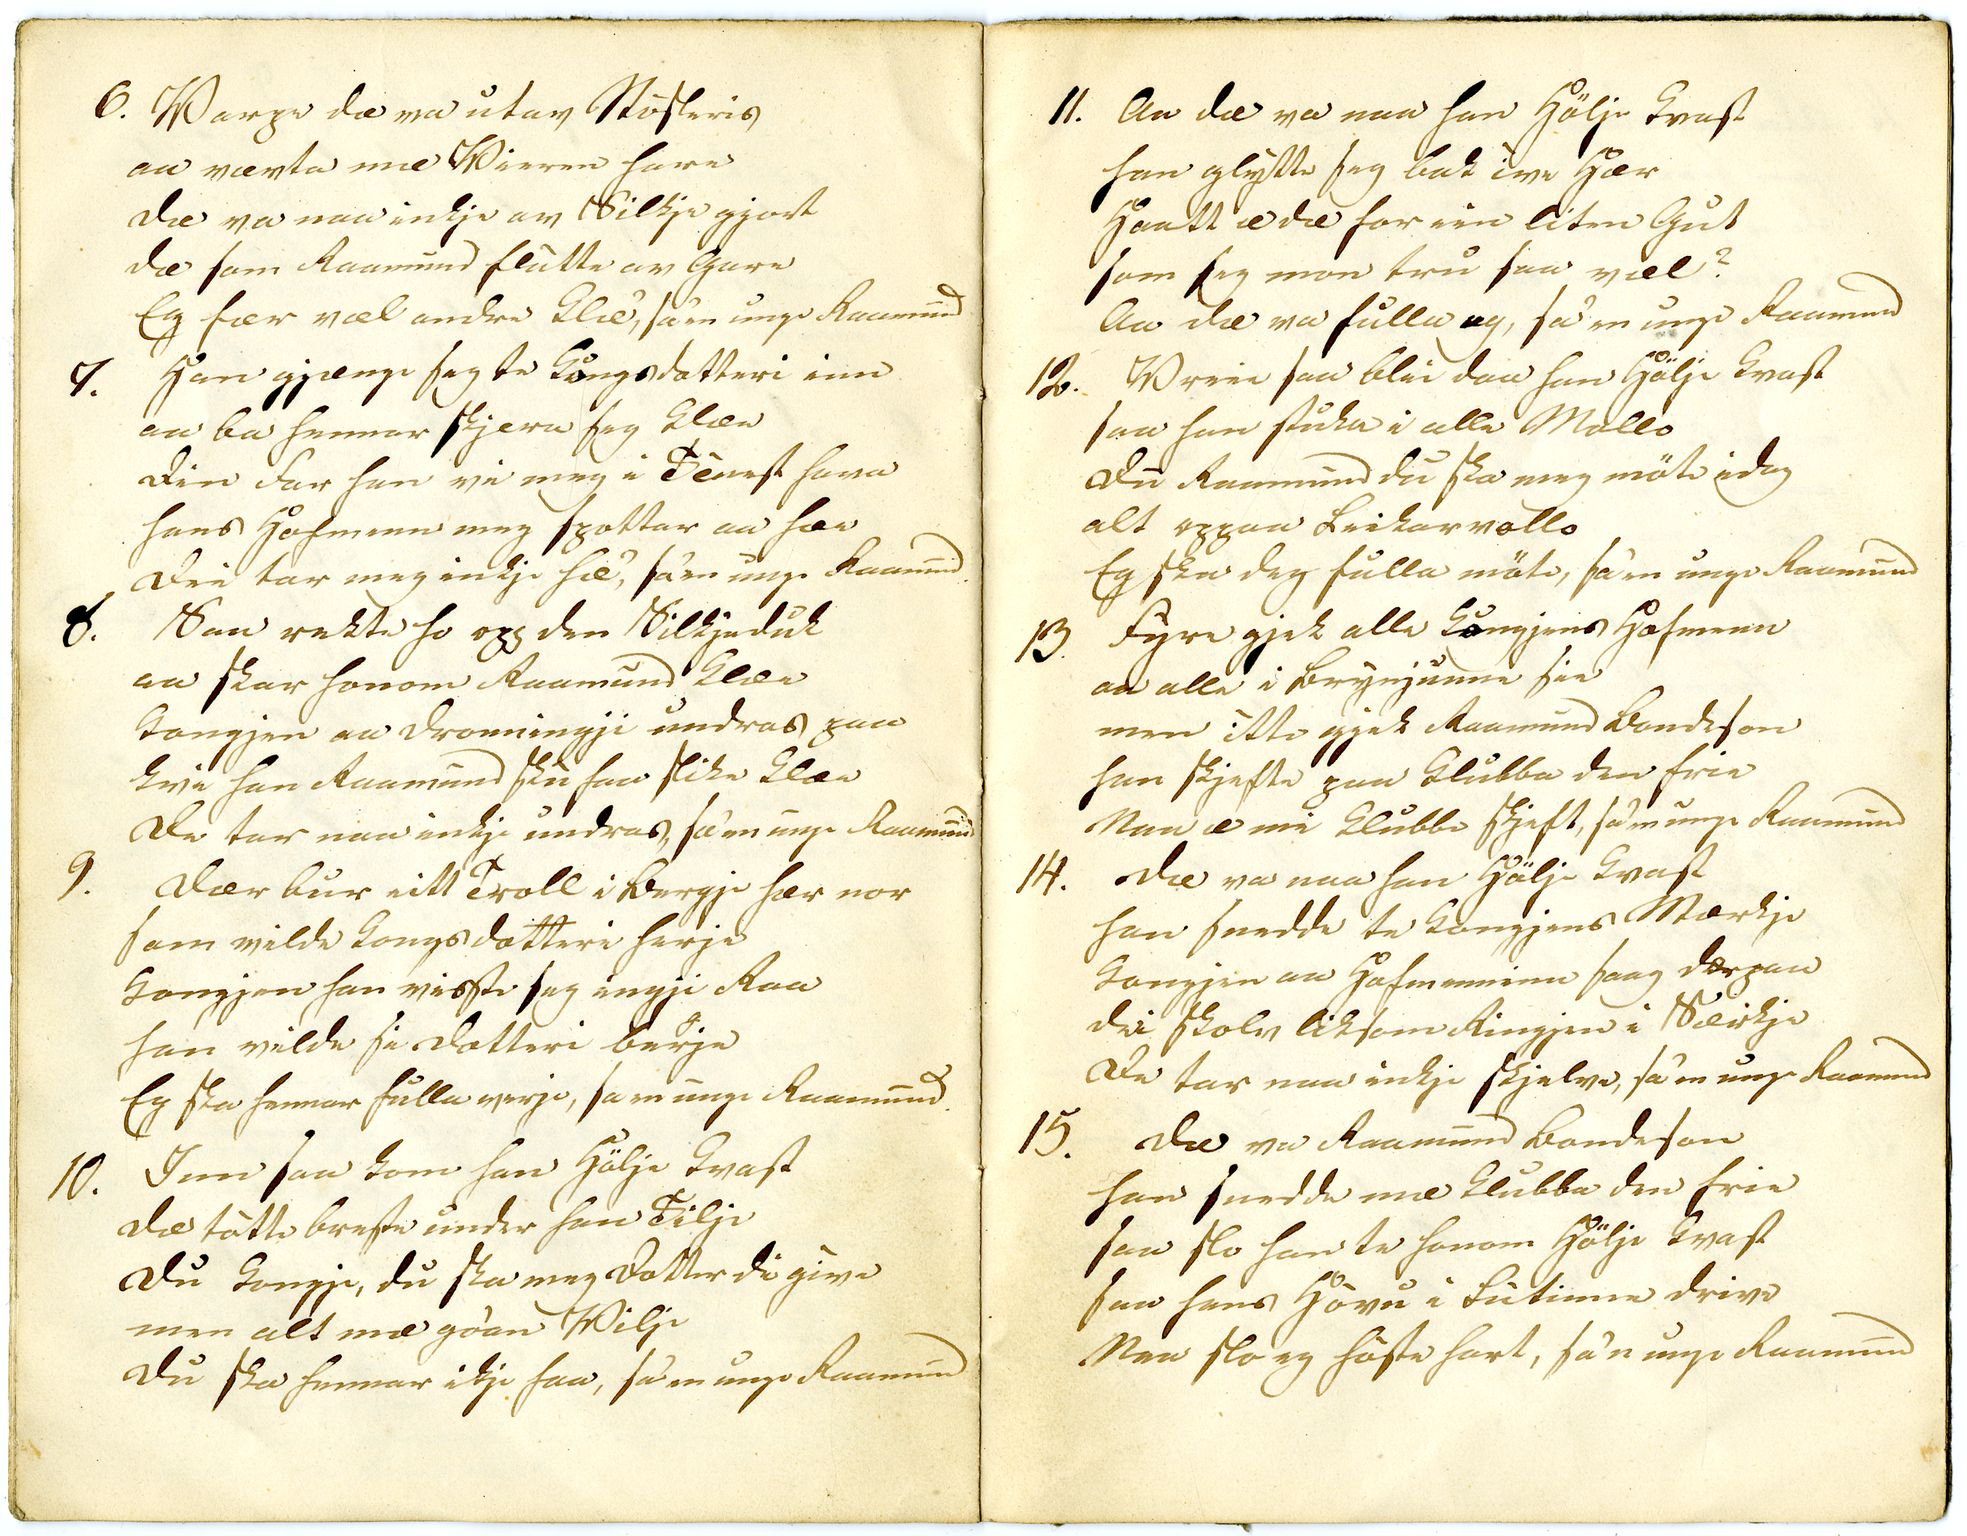 6. Varpe dæ va utav Stöskeris
aa vævta mæ Vieren hare
dæ va naa inkje av Silkje gjort
dæ som Raamund flutte av Gare
Eg fær væl andre Klæ, sa'en unge Raamund
7. Han gjænge seg te Kongsdotteri inn
aa ba hennar skjera seg Klæe
Din Far han vi meg i Tenest hava
hans Hofmenn meg spottar aa hæe
Dei tar meg inkje hæ, sa'en unge Raamund
8. Saa rekte ho opp den Silkjeduk
aa skar honom Raamund Klæe
Kongjen aa Dronningji undras paa
kvi han Raamund sku faa slike Klæe
De tar naa inkje undras, sa'en unge Raamund
9. Dær bur eitt Troll i Bergje hær nor
som vilde Kongsdotteri herje
Kongjen han visste seg ingji Raa
han vilde si Dotteri berje
Eg ska hennar fulla verje, sa en unge Raamund
10. Inn saa kom han Hölje Kvast
dæ totte breste under han Tilje
Du Kongje, du ska meg Dotter di give
men alt mæ goan Vilje
Du ska hennar ikje faa, sa'en unge Raamund
11. Aa dæ va naa han Hölje Kvast
han glytte seg bak ive Hær
Haatt æ dæ for ein liten Gut
som seg mon tru saa væl?
Aa dæ va fulla eg, sa'en unge Raamund
12. Vreie saa blei daa han Hölje Kvast
saa han stuka i alle Mollo
Du Raamund du ska meg möte idag
alt oppaa Leikarvollo
Eg ska deg fulla möte, sa'en unge Raamund
13. Fyre gjek alle Kongjens Hofmenn
aa alle i Brynjunne sie
men itte gjek Raamund Bondeson
han skjefte paa Klubba den frie
Naa æ mi Klubbe skjeft, sa'en unge Raamund
14. Dæ va naa han Hölje Kvast
han snedde te Kongjens Mærkje
Kongjen aa Hofmennine saag dærpaa
dei skolv liksom Ringjen i Særkje
De tar naa inkje skjelve, sa'en unge Raamund
15. Dæ va Raamund Bondeson
han snedde mæ Klubba den frie
saa slo han te honom Hölje Kvast
saa hans Hovu i Lutinne drive
Naa slo eg höste hart, sa'n unge Raamund